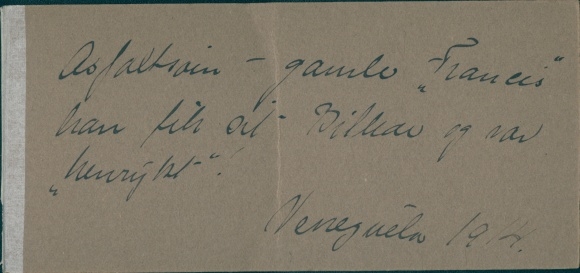 Asfaltsvin - gamle „Francis"
han fik sit Billede og var
„henrykt"!
Venezuela 1914.